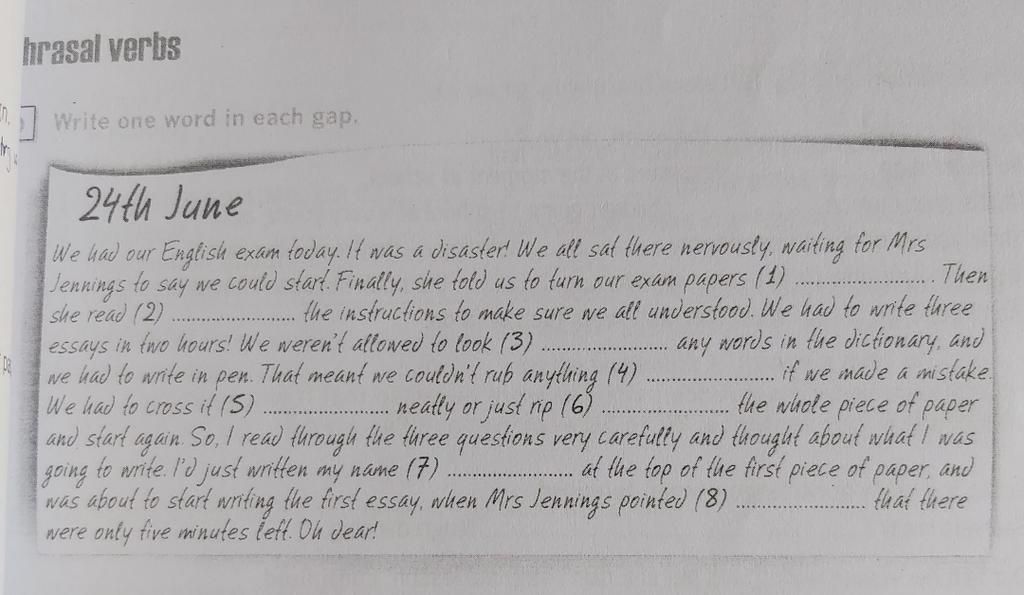 hrasal verbs
Write one word in each gap.
24th June
We had our English exam today. It was a disaster! We all sat there nervously, waiting for Mrs
Jennings to say we could start. Finally, she told us to turn our exam papers (1) .......................... . Then
she read (2) .......................... the instructions to make sure we all understood. We had to write three
essays in two hours! We weren't allowed to look (3) .......................... any words in the dictionary, and
we had to write in pen. That meant we couldn't rub anything (4) .......................... if we made a mistake.
We had to cross it (5) .......................... neatly or just rip (6) .......................... the whole piece of paper
and start again. So, I read through the three questions very carefully and thought about what I was
going to write. I'd just written my name (7) .......................... at the top of the first piece of paper, and
was about to start writing the first essay, when Mrs Jennings pointed (8) .......................... that there
were only five minutes left. Oh dear!